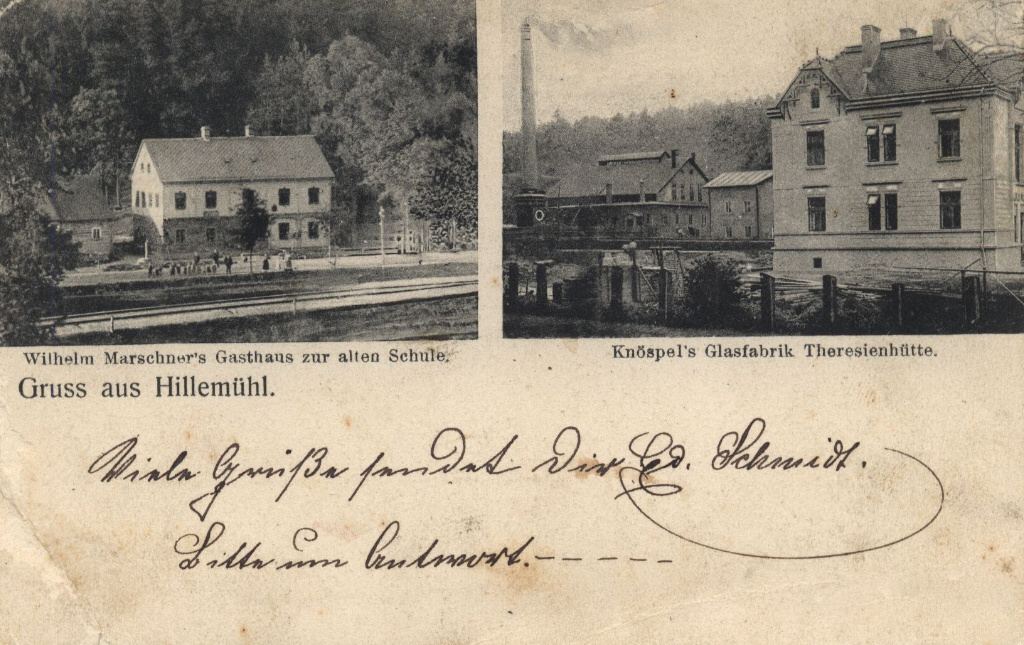 Wilhelm Marschner's Gasthaus zur alten Schule.
Knöspel's Glasfabrik Theresienhütte.
Gruss aus Hillemühl.
Viele Grüße sendet Dir Ed. Schmidt.
Bitte um Antwort. – – – – –